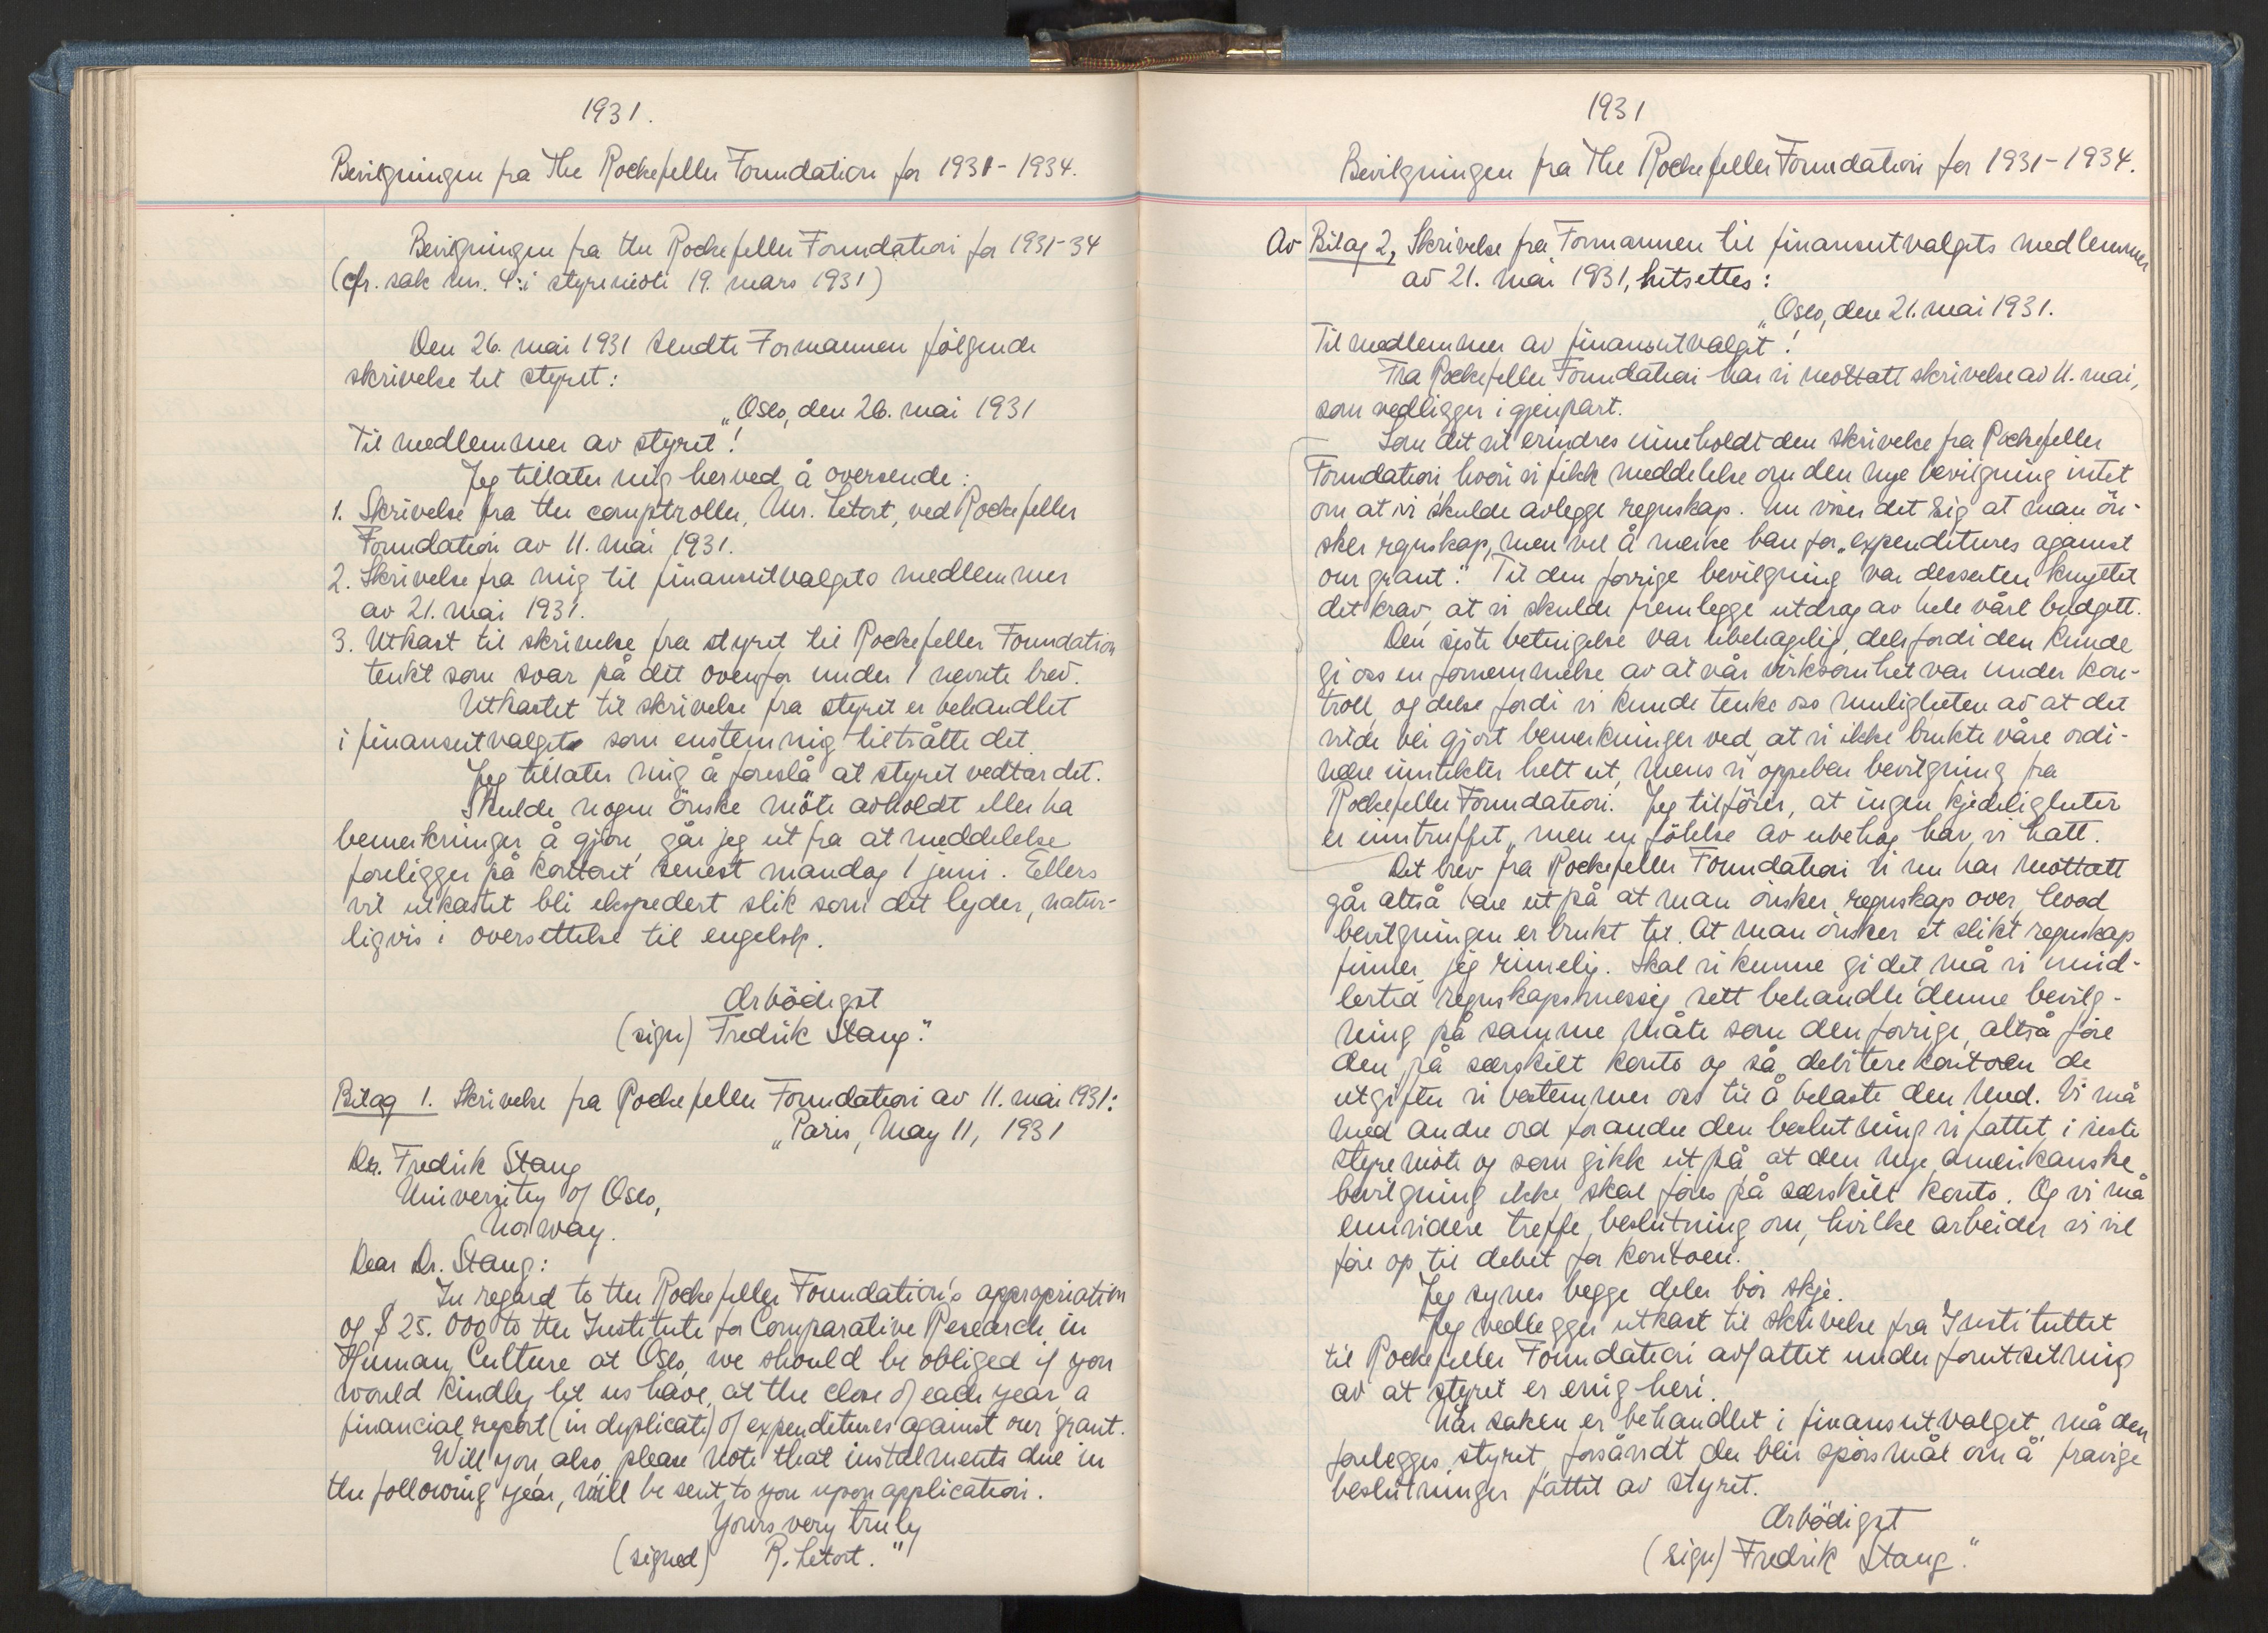 1931.
Bevilgningen fra The Rockefeller Foundation for 1931-1934.
Bevilgningen fra the Rockefeller Foundation for 1931-34
(cfr. sak nr. 4: i styremöte 19. mars 1931)
Den 26. mai 1931 sendte Formannen fölgende
skrivelse til styret:
„Oslo, den 26. mai 1931
Til medlemmer av styret!
Jeg tillater mig herved å oversende:
1. Skrivelse fra the comptroller, Mr. Létort, ved Rockefeller
Foundation av 11. mai 1931.
2. Skrivelse fra mig til finansutvalgets medlemmer
av 21. mai 1931.
3. Utkast til skrivelse fra styret til Rockefeller Foundation
tenkt som svar på det ovenfor under 1 nevnte brev.
Utkastet til skrivelse fra styret er behandlet
i finansutvalget som enstemmig tiltrådte det.
Jeg tillater mig å foreslå at styret vedtar det.
Skulde nogen önske möte avholdt eller ha
bemerkninger å gjöre, går jeg ut fra at meddelelse
foreligger på kontoret senest mandag 1 juni. Ellers
vil utkastet bli ekspedert slik som det lyder, natur-
ligvis i oversettelse til engelsk.
Ærbödigst
(sign) Fredrik Stang."
Bilag 1. Skrivelse fra Rockefeller Foundation av 11. mai 1931:
„Paris, May 11, 1931
Dr. Fredrik Stang
University of Oslo,
Norway.
Dear Dr. Stang:
In regard to the Rockefeller Foundation's appropriation
of $ 25.000 to the Institute for Comparative Research in
Human Culture at Oslo, we should be obliged if you
would kindly let us have, at the close of each year, a
financial report (in duplicate) of expenditures against our grant.
Will you, also, please note that instalments due in
the following year, will be sent to you upon application.
Yours very truly
(signed) R. Létort."
1931
Bevilgningen fra The Rockefeller Foundation for 1931-1934.
Av Bilag 2, Skrivelse fra Formannen til finansutvalgets medlemmer
av 21. mai 1931, hitsettes:
„Oslo, den 21. mai 1931.
Til medlemmer av finansutvalget!
Fra Rockefeller Foundation har vi mottatt skrivelse av 11. mai,
som vedligger i gjenpart.
Som det vil erindres inneholdt den skrivelse fra Rockefeller
Foundation hvori vi fikk meddelelse om den nye bevilgning intet
om at vi skulde avlegge regnskap. Nu viser det sig at man ön-
sker regnskap, men vel å merke bare for „expenditures against
our grant". Til den forrige bevilgning var dessuten knyttet
det krav, at vi skulde fremlegge utdrag av hele vårt budgett.
Den siste betingelse var ubehagelig, dels fordi den kunde
gi oss en fornemmelse av at vår virksomhet var under kon-
troll, og dels fordi vi kunde tenke oss muligheten av at det
vilde bli gjort bemerkninger ved at vi ikke brukte våre ordi-
nære inntekter helt ut, mens vi oppebar bevilgning fra
Rockefeller Foundation. Jeg tilföier, at ingen kjedeligheter
er inntruffet, men en fölelse av ubehag har vi hatt.
Det brev fra Rockefeller Foundation vi nu har mottatt
går altså bare ut på at man önsker regnskap over, hvad
bevilgningen er brukt til. At man önsker et slikt regnskap
finner jeg rimelig. Skal vi kunne gi det må vi imid-
lertid regnskapsmessig sett behandle denne bevilg-
ning på samme måte som den forrige, altså före
den på særskilt konto og så debitere kontoen de
utgifter vi bestemmer oss til å belaste den med. Vi må
med andre ord forandre den beslutning vi fattet i siste
styremöte og som gikk ut på at den nye amerikanske
bevilgning ikke skal föres på særskilt konto. Og vi må
ennvidere treffe beslutning om, hvilke arbeider vi vil
före op til debet for kontoen.
Jeg synes begge deler bör skje.
Jeg vedlegger utkast til skrivelse fra Instituttet
til Rockefeller Foundation avfattet under forutsetning
av at styret er enig heri.
Når saken er behandlet i finansutvalget, må den
forelegges styret, forsåvidt der blir spörsmål om å fravige
beslutninger fattet av styret.
Ærbödigst
(sign) Fredrik Stang."